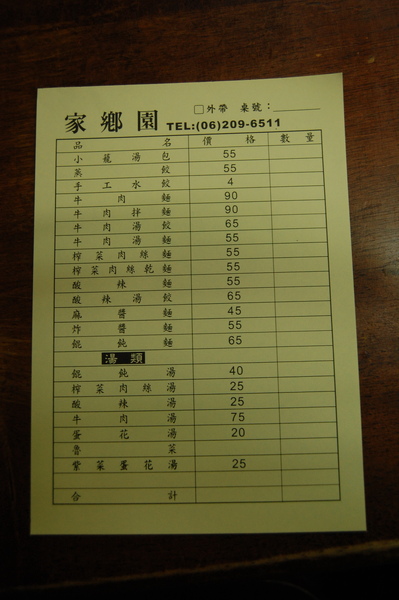 □外帶 桌號：
家鄉園 TEL:(06)209-6511
品名 價格 數量
小籠湯包 55
蒸餃 55
手工水餃 4
牛肉麵 90
牛肉拌麵 90
牛肉湯餃 65
牛肉湯麵 55
榨菜肉絲麵 55
榨菜肉絲乾麵 55
酸辣麵 55
酸辣湯餃 65
麻醬麵 45
炸醬麵 55
餛飩麵 65
湯類
餛飩湯 40
榨菜肉絲湯 25
酸辣湯 25
牛肉湯 75
蛋花湯 20
魯菜
紫菜蛋花湯 25
合計